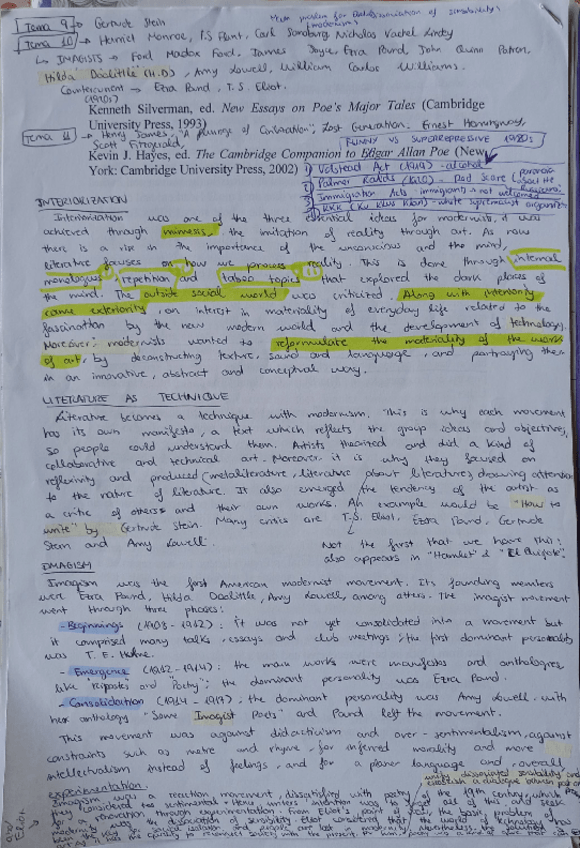 Tema 9 → Gertrude Stein
Tema 10 → Harriet Monroe, F.S Flint, Carl Sandburg Nicholas Vachel Lindsay
↳ IMAGISTS → Ford Madox Ford, James Joyce, Ezra Pound, John Quinn Patron,
Hilda Doolittle (H.D), Amy Lowell, William Carlos Williams.
Countercurrent → Ezra Pound, T.S. Eliot.
(1910s)
Kenneth Silverman, ed. New Essays on Poe's Major Tales (Cambridge
University Press, 1993)
Tema 11 → Henry James, "A passage of", Lost Generation. Ernest Hemingway,
Scott Fitzgerald,
FUNNY VS SUPERREPRESSIVE 1920s
Kevin J. Hayes, ed. The Cambridge Companion to Edgar Allan Poe (New
York: Cambridge University Press, 2002)
1) Volstead Act (1919) - alcohol
2) Palmer Raids (1920) - Red Scare
3) Immigration Acts - immigrants not welcomed
4) KKK (Ku Klux Klan) - white supremacist
INTERIORIZATION
Interiorization was one of the three essential ideas for modernists, it was
achieved through mimesis, the imitation of reality through art. As now
there is a rise in the importance of the unconscious and the mind,
literature focuses on how we process reality. This is done through internal
monologues, repetition and taboo topics that explored the dark places of
the mind. The outside social world was criticized. Along with interiority
came exteriority, an interest in materiality of everyday life related to the
fascination by the new modern world and the development of technology.
Moreover, modernists wanted to reformulate the materiality of the works
of art, by deconstructing texture, sound and language, and portraying them
in an innovative, abstract and conceptual way.
LITERATURE AS TECHNIQUE
Literature becomes a technique with modernism. This is why each movement
has its own manifesto, a text which reflects the group ideas and objectives,
so people could understand them. Artists theorized and did a kind of
collaborative and technical art. Moreover, it is why they focused on
reflexivity and produced (metaliterature, literature about literature) drawing attention
to the nature of literature. It also emerged the tendency of the artist as
a critic of others and their own works. An example would be "How to
write" by Gertrude Stein. Many critics are T.S. Eliot, Ezra Pound, Gertrude
Stein and Amy Lowell.
Not the first that we have this;
also appears in "Hamlet" & "El Quijote".
IMAGISM
Imagism was the first American modernist movement. Its founding members
were Ezra Pound, Hilda Doolittle, Amy Lowell, among others. The imagist movement
went through three phases:
- Beginnings (1908-1912): it was not yet consolidated into a movement but
it comprised many talks, essays and club meetings; the first dominant personality
was T. E. Hulme.
- Emergence (1912-1914): the main works were manifestos and anthologies
like "Ripostes" and "Poetry"; the dominant personality was Ezra Pound.
- Consolidation (1914-1917): the dominant personality was Amy Lowell with
her anthology "Some Imagist Poets" and Pound left the movement.
This movement was against didacticism and over-sentimentalism, against
constraints such as metre and rhyme, for inferred morality and more
intellectualism instead of feelings, and for a planer language and overall
experimentation.
Imagism was a reaction movement, dissatisfied with poetry of the 19th century which
they considered too sentimental.